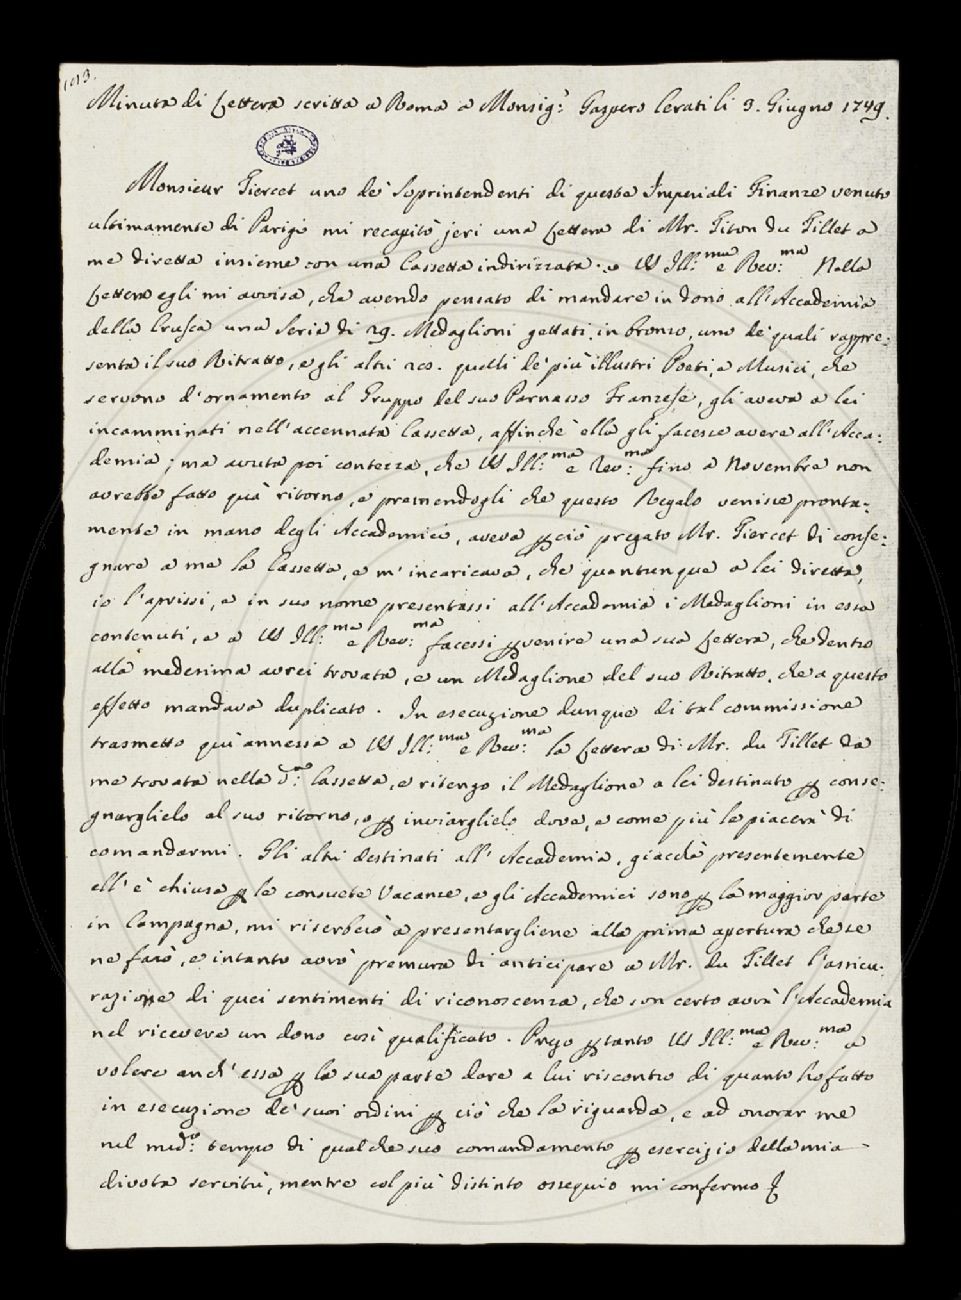 Minuta di Lettera scritta a Roma a Monsig.r Gaspero Cerati li 3. Giugno 1749.
Monsieur Tiercet uno de' Soprintendenti di queste Imperiali Finanze venuto
ultimamente di Parigi mi recapitò jeri una Lettera di Mr. Titon du Tillet a
me diretta insieme con una Cassetta indirizzata a VS Ill:ma e Rev:ma Nella
Lettera egli mi avvisa, che avendo pensato di mandare in dono all'Accademia
della Crusca una Serie di 29. Medaglioni gettati in bronzo, uno de' quali rappre:
senta il suo Ritratto, e gli altri 28. quelli de' più illustri Poeti, e Musici, che
servono d'ornamento al Gruppo del suo Parnasso Franzese, gli aveva a lei
incamminati nell'accennata Cassetta, affinchè ella gli facesse avere all'Acca:
demia; ma avuta poi contezza, che VS Ill:ma e Rev:ma fino a Novembre non
avrebbe fatto quà ritorno, e premendogli che questo Regalo venisse pronta:
mente in mano degli Accademici, aveva p ciò pregato Mr. Tiercet di conse:
gnare a me la Cassetta, e m'incaricava, che quantunque a lei diretta,
io l'aprissi, e in suo nome presentassi all'Accademia i Medaglioni in essa
contenuti, e a VS Ill:ma e Rev:ma facessi pvenire una sua Lettera, che dentro
alla medesima avrei trovata, e un Medaglione del suo Ritratto, che a questo
effetto mandava duplicato. In esecuzione dunque di tal commissione
trasmetto quì annessa a VS Ill:ma e Rev:ma la Lettera di Mr. du Tillet da
me trovata nella d.a Cassetta, e ritengo il Medaglione a lei destinato p conse:
gnarglielo al suo ritorno, o p inviarglielo dove, e come più le piacerà di
comandarmi. Gli altri destinati all'Accademia, giacchè presentemente
ell'è chiusa p le consuete Vacanze, e gli Accademici sono p la maggior parte
in Campagna, mi riserberò a presentargliene alla prima apertura che se
ne farà, e intanto avrò premura di anticipare a Mr. du Tillet l'assicu:
razione di quei sentimenti di riconoscenza, che son certo avrà l'Accademia
nel ricevere un dono così qualificato. Prego p tanto VS Ill:ma e Rev:ma a
volere anch'essa p la sua parte dare a lui riscontro di quanto ho fatto
in esecuzione de' suoi ordini p ciò che la riguarda, e ad onorar me
nel med.o tempo di qualche suo comandamento p esercizio della mia
divota servitù, mentre col più distinto ossequio mi confermo